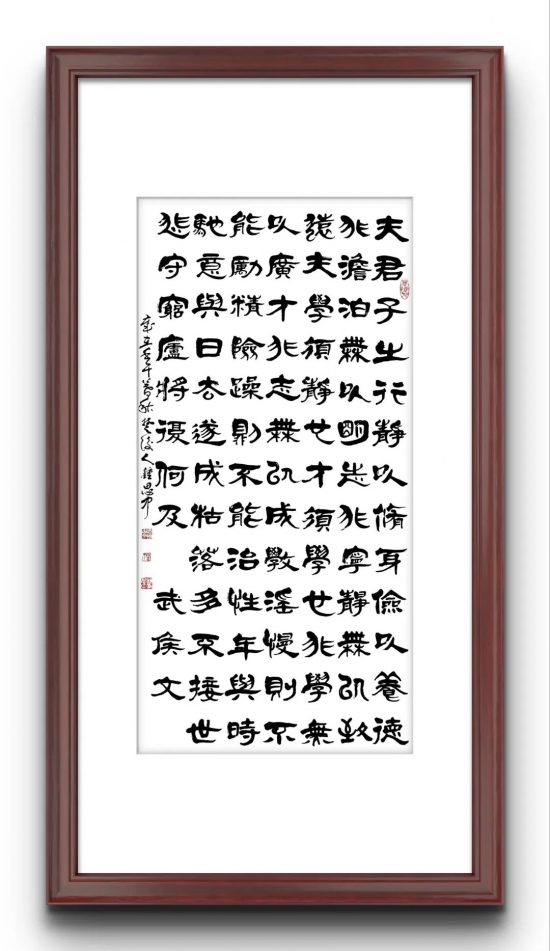 夫君子之行靜以脩身儉以養德
非澹泊無以明志非寧靜無以致
遠夫學須靜也才須學也非學無
以廣才非志無以成斆淫慢則不
能勵精險躁則不能治性年與時
馳意與日去遂成枯落多不接世
悲守窮廬將復何及 武侯文
辛丑